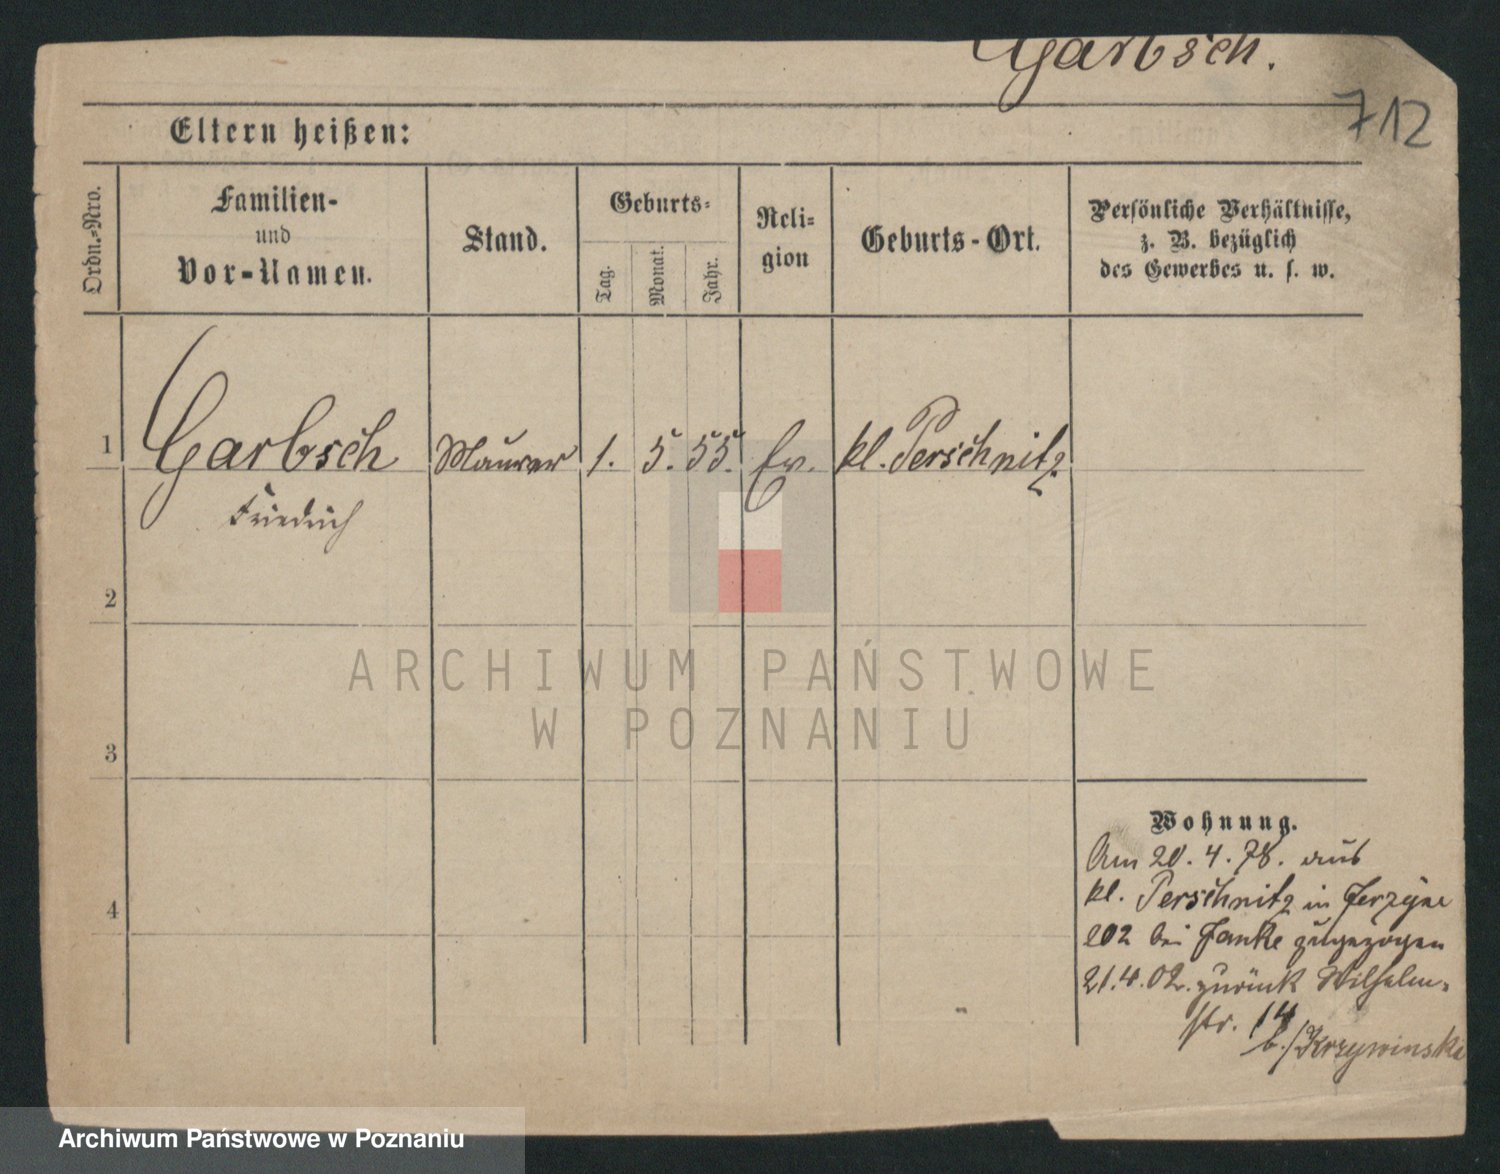 Garbsch.
712
Eltern heißen:
Ordn.-Nro.
Familien-
und
Vor-Namen.
Stand.
Geburts-
Tag.
Monat.
Jahr.
Reli-
gion
Geburts-Ort.
Persönliche Verhältnisse,
z. B. bezüglich
des Gewerbes u. s. w.
1 Garbsch Maurer 1. 5. 55. Ev. kl. Perschnitz
Friedrich
2
3
4
Wohnung.
Am 20.4.78. aus
kl. Perschnitz in
202 bei Janke zugezogen
21.4.02. zurück Wilhelm-
str. 14
b./Krzywinski
ARCHIWUM PAŃSTWOWE
W POZNANIU
Archiwum Państwowe w Poznaniu